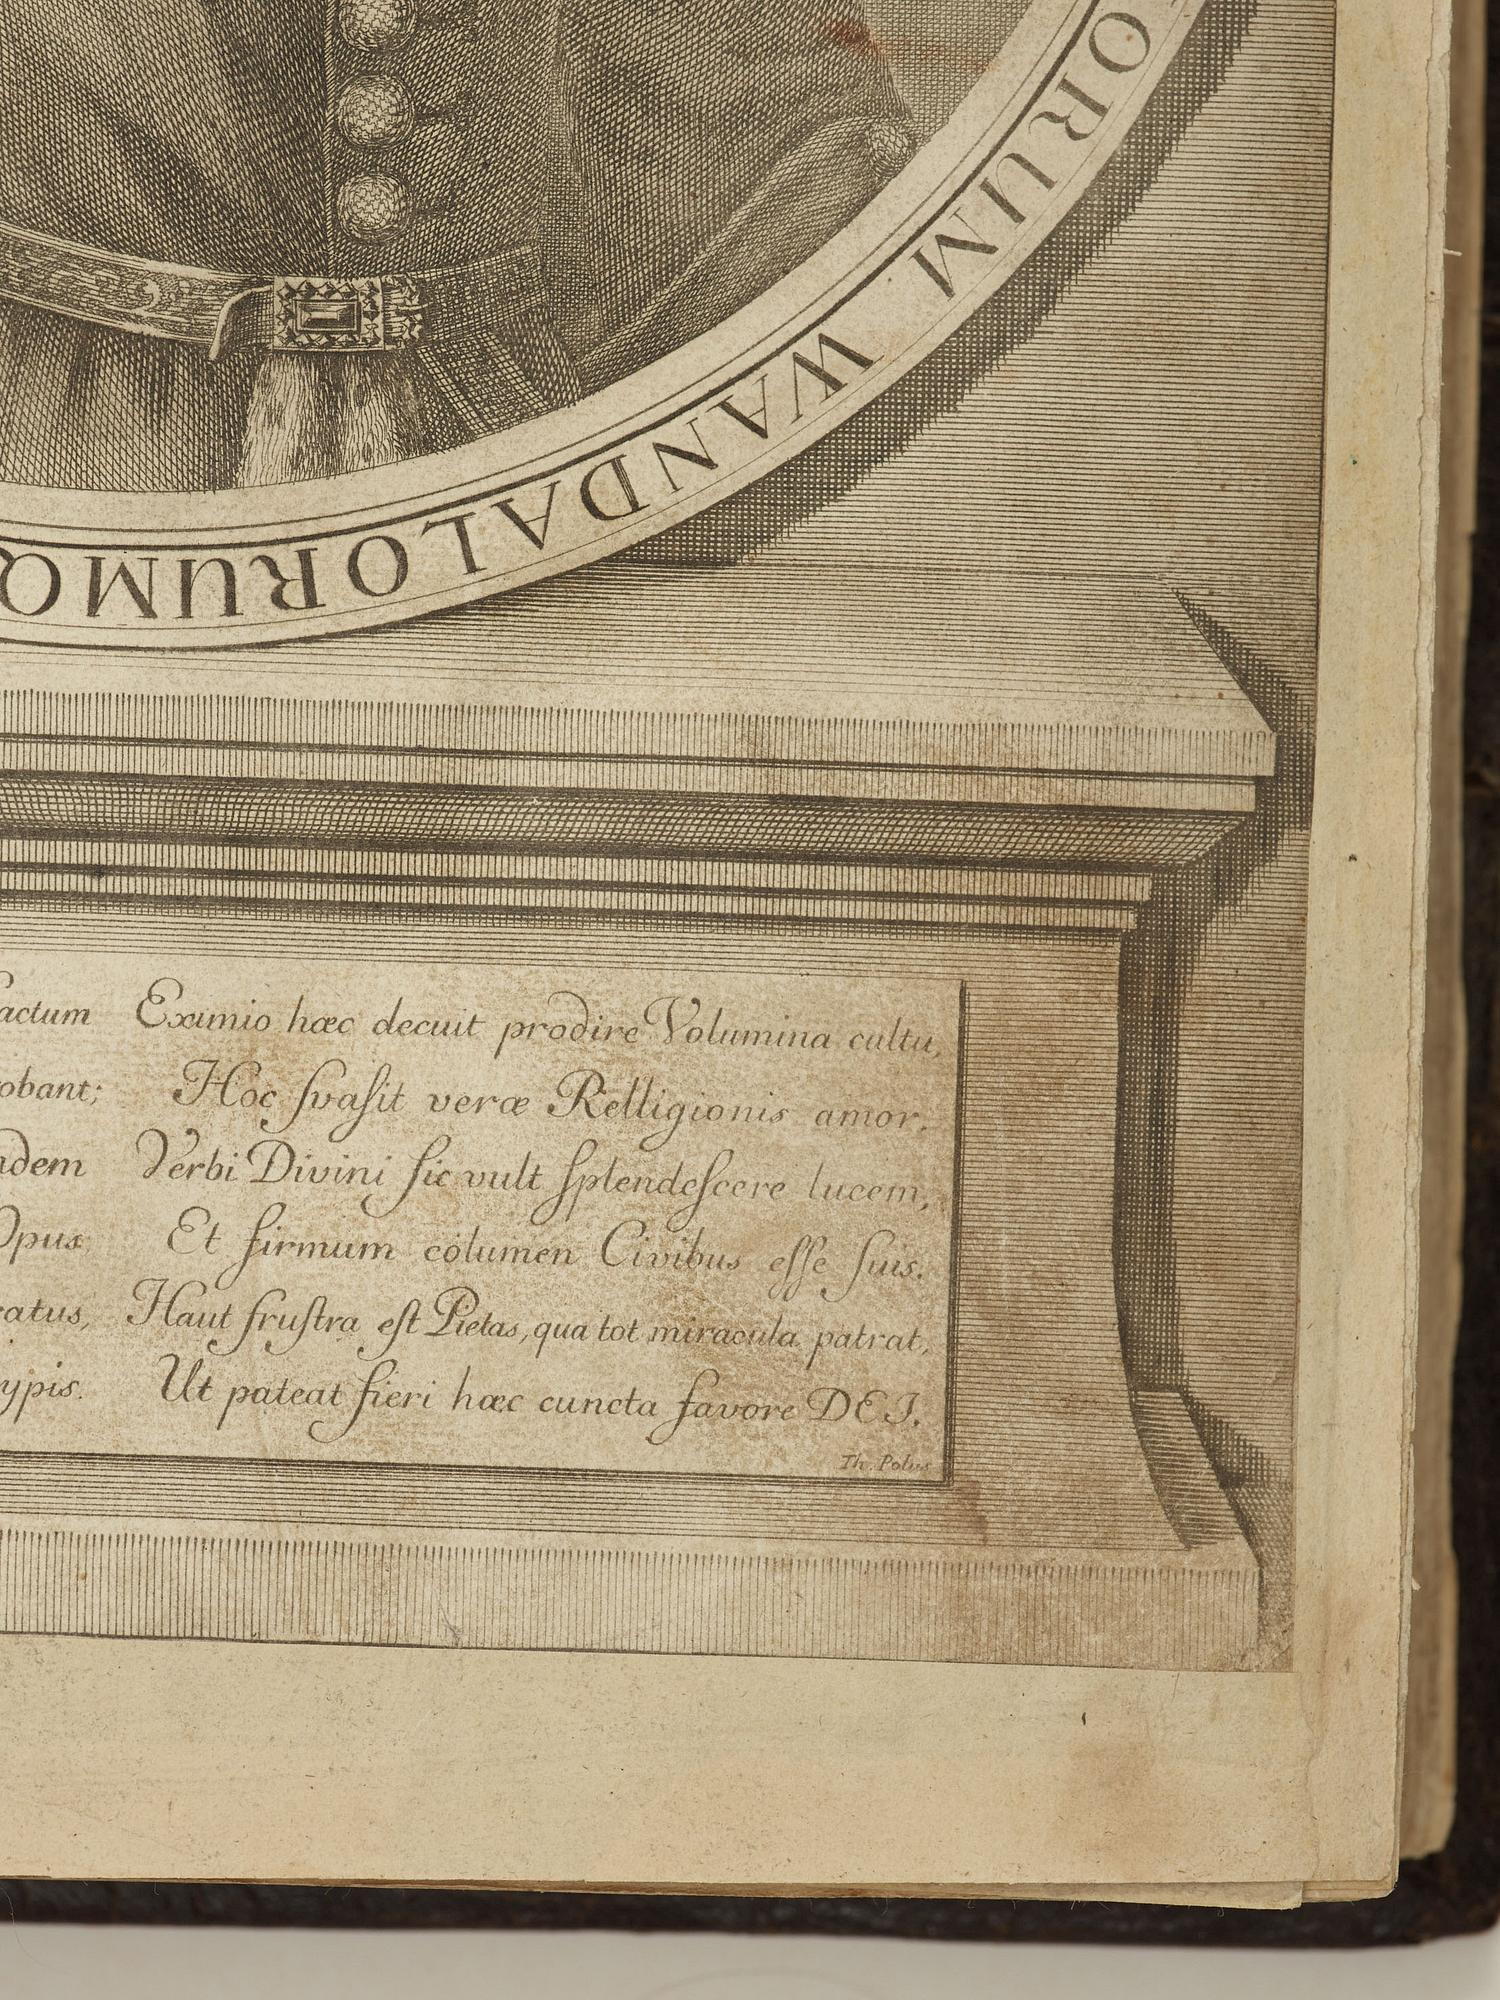 ORUM WANDALORUMQ
actum Eximio hæc decuit prodire Volumina cultu,
obant; Hoc ſvaſit veræ Relligionis amor.
adem Verbi Divini ſic vult ſplendeſcere lucem,
Opus Et firmum columen Civibus eſſe ſuis.
ratus, Haut fruſtra eſt Pietas, qua tot miracula patrat,
ypis. Ut pateat fieri hæc cuncta favore DEI.
Th. Polus